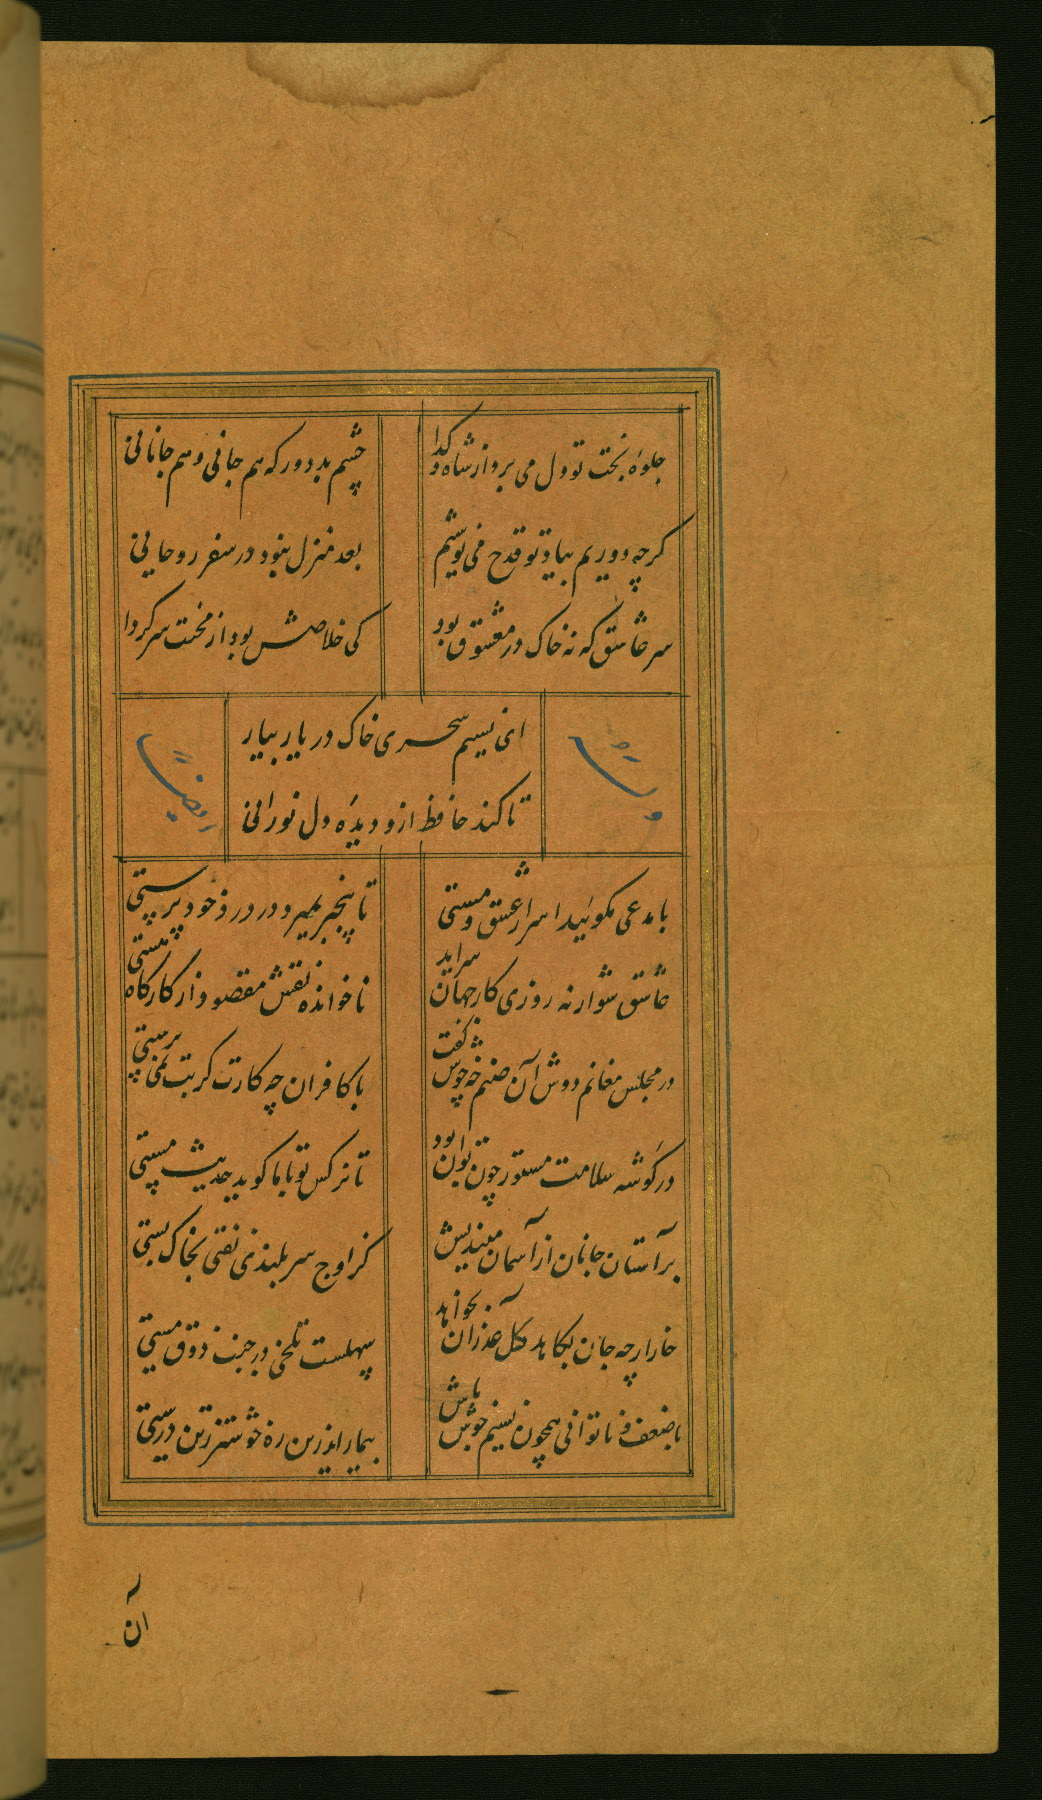 جلوهٔ بخت تو دل می برد از شاه و کدا
چشم بد دور که هم جانی و هم جانانی
کرچه دوریم بیاد تو قدح می نوشیم
بعد منزل نبود در سفر روحانی
سر عاشق که نه خاک در معشوق بود
کی خلاصش بود از محنت سرکردا
ای نسیم سحری خاک در یار بیار
تا کند حافظ ازو دیدهٔ دل نورانی
وله
ایضا
با مدعی مکوئید اسرار عشق و مستی
تا بیخبر بمیرد در درد خود پرستی
عاشق شو ار نه روزی کار جهان سر آید
ناخوانده نقش مقصود از کارکاه هستی
در مجلس مغانم دوش آن صنم چه خوش کفت
با کافران چه کارت کر بت نمی پرستی
در کوشه سلامت مستور چون توان بود
تا نرکس تو با ما کوید حدیث مستی
بر آستان جانان از آسمان میندیش
کز اوج سربلندی افتی بخاک پستی
خار ارچه جان بکاهد کل عذر آن بخواهد
سهلست تلخی در جنب ذوق مستی
با ضعف و ناتوانی همچون نسیم خوش باش
بیمار اندرین ره خوشتر ز تن درستی
ان